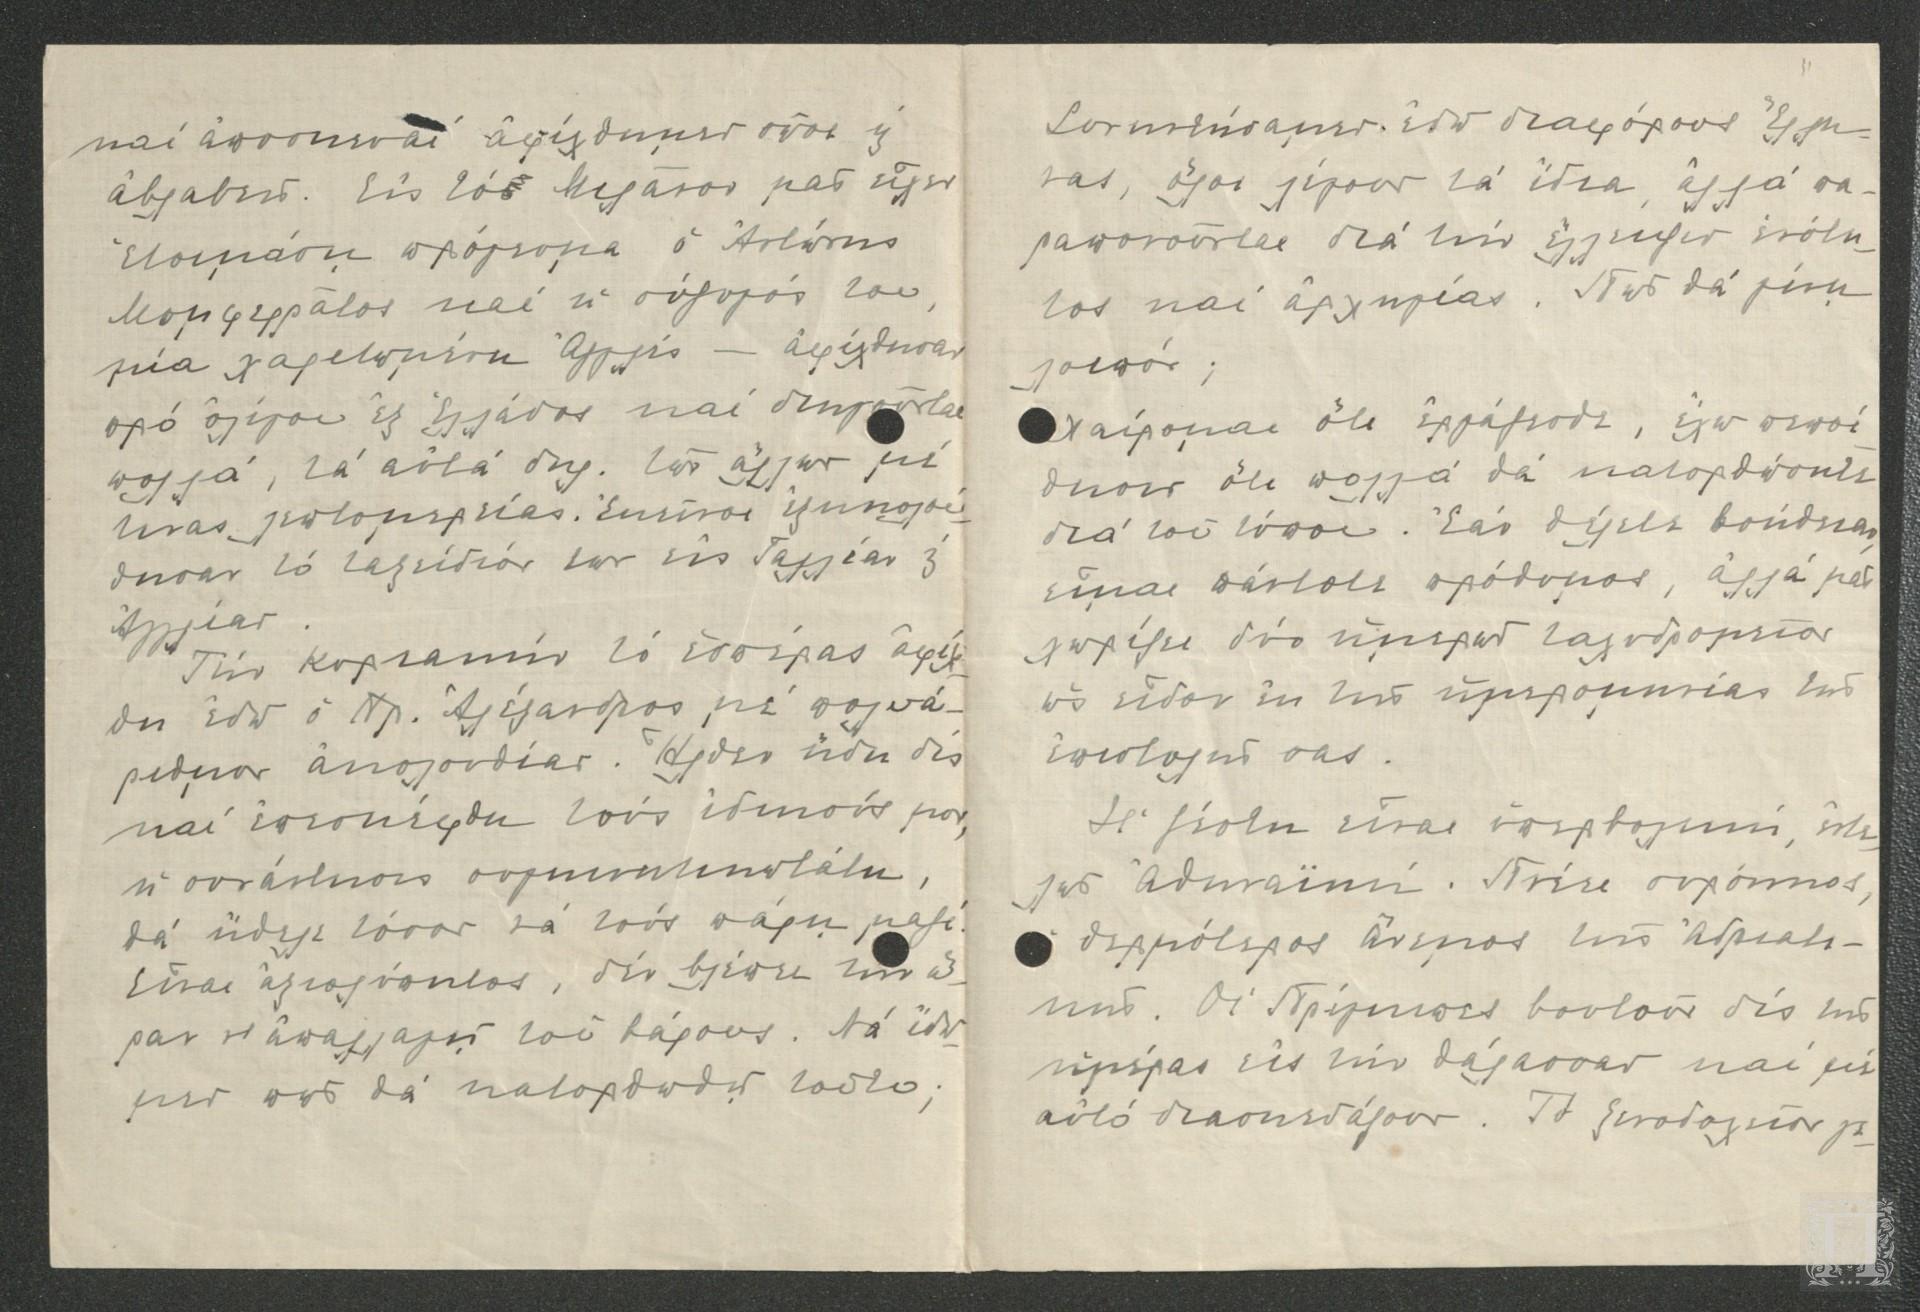 καί ἀποσκευαί ἀφίχθημεν σῶοι κ
ἀβλαβεῖς. Εἰς τό Μιλᾶνον μᾶς εἶχεν
ἑτοιμάση πρόγευμα ὁ Ἀντώνης
Μομφερρᾶτος καί ἡ σύζυγός του,
μία χαριτωμένη Ἀγγλίς — ἀφίχθησαν
πρό ὀλίγου ἐξ Ἑλλάδος καί διηγοῦνται
πολλά, τά αὐτά δηλ. τῶν ἄλλων μέ
τινας λεπτομερείας. Ἐκεῖνοι ἐξηκολού-
θησαν τό ταξείδιόν των εἰς Γαλλίαν κ
Ἀγγλίαν.
Τήν Κυριακήν τό ἑσπέρας ἀφίχ-
θη ἐδῶ ὁ Πρ. Ἀλέξανδρος μέ πολυά-
ριθμον ἀκολουθίαν. Ἦλθεν ἤδη δίς
καί ἐπεσκέφθη τούς ἰδικούς μου,
ἡ συνάντησις συγκινητικωτάτη,
θά ἤθελε τόσον νά τούς πάρῃ μαζί.
Εἶναι ἀξιολύπητος, δέν βλέπει τήν ὥ-
ραν ν' ἀπαλλαγῇ τοῦ βάρους. Νά ἰδῶ-
μεν πῶς θά κατορθωθῇ τοῦτο;
Συνηντήσαμεν ἐδῶ διαφόρους Ἕλλη-
νας, ὅλοι λέγουν τά ἴδια, ἀλλά πα-
ραπονοῦνται διά τήν ἔλλειψιν ἑνότη-
τος καί ἀρχηγίας. Πῶς θά γίνῃ
λοιπόν;
Χαίρομαι ὅτι ἐργάζεσθε, ἔχω πεποί
θησιν ὅτι πολλά θά κατορθώσητε
διά τοῦ τύπου. Ἐάν θέλετε βοήθειαν,
εἶμαι πάντοτε πρόθυμος, ἀλλά μᾶς
χωρίζει δύο ἡμερῶν ταχυδρομεῖον
ὡς εἶδον ἐκ τῆς ἡμερομηνίας τῆς
ἐπιστολῆς σας.
Ἡ ζέστη εἶναι ὑπερβολική, ἐντε-
λῶς Ἀθηναϊκή. Πνέει συρόκκος,
ὁ θερμότερος ἄνεμος τῆς Ἀδριατι-
κῆς. Οἱ Πρίγκιπες βουτοῦν δίς τῆς
ἡμέρας εἰς τήν θάλασσαν καί μέ
αὐτό διασκεδάζουν. Τό ξενοδοχεῖον γε-